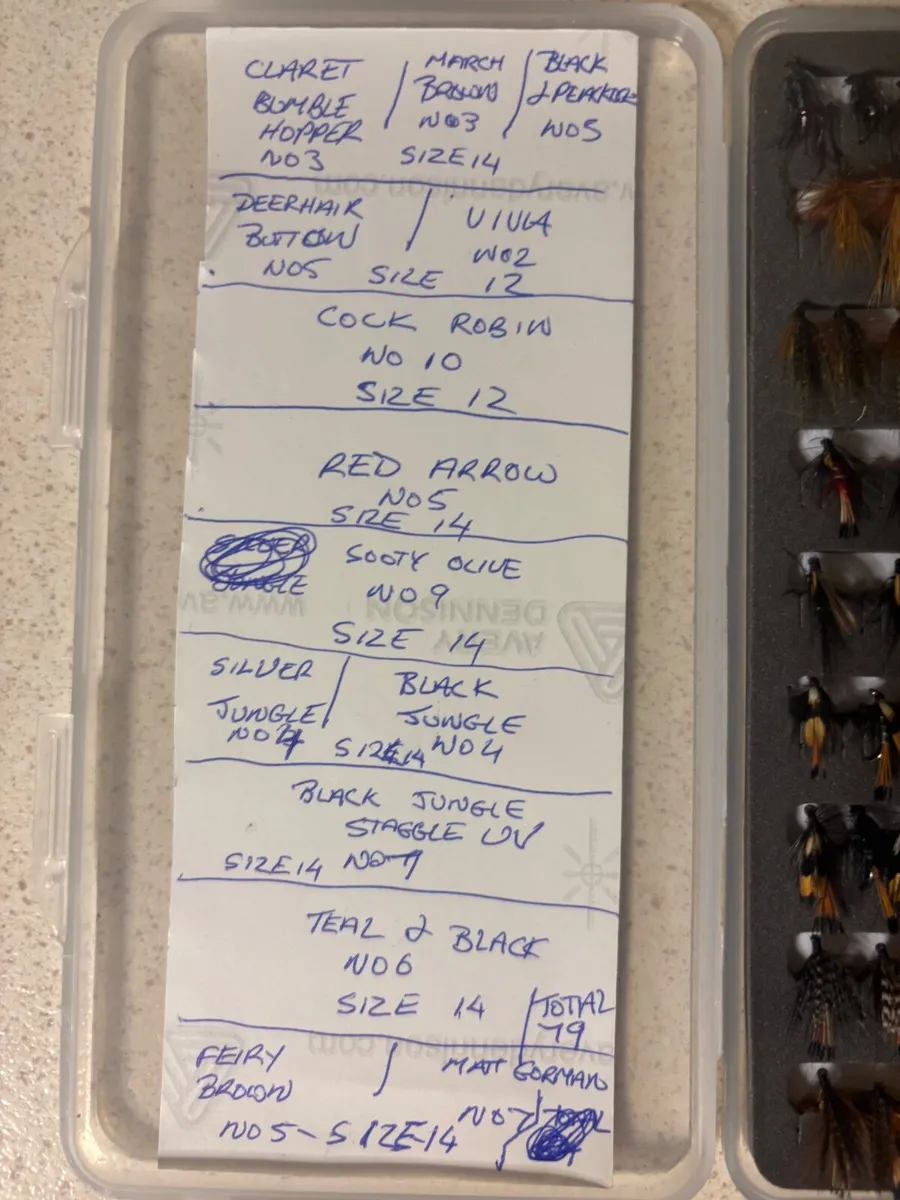 CLARET / MARCH / BLACK
BUMBLE BROWN & PEACKOCK
HOPPER NO3 NO5
NO3 SIZE 14
www.averydennison.com
DEERHAIR / VIVA
BUTTON NO2
NO5 SIZE 12
COCK ROBIN
NO 10
SIZE 12
RED ARROW
NO5
SIZE 14
SOOTY OLIVE
NO 9
www.av
AVERY
DENNISON
SIZE 14
SILVER / BLACK
JUNGLE JUNGLE
NO4 SIZE 14 NO4
BLACK JUNGLE
STAGGLE UV
SIZE 14 NO
TEAL & BLACK
NO6
SIZE 14 TOTAL
79
averydennison.com
FEIRY / MATT GORMAN
BROWN
NO5 - SIZE-14 NO7